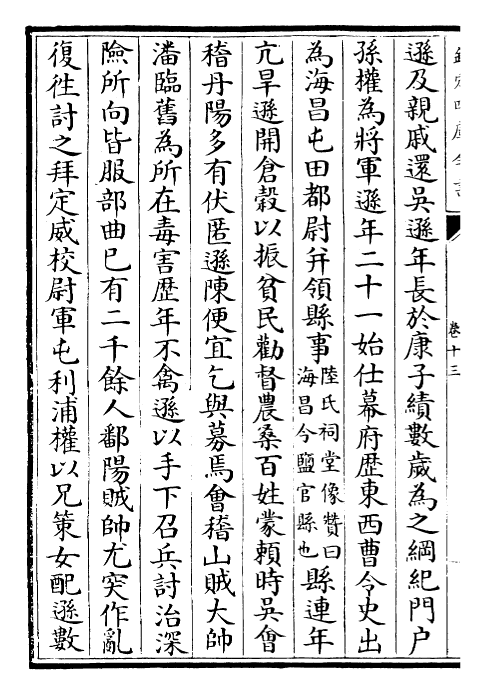 欽定四庫全書
卷十三
遜及親戚還吳遜年長於康子績數歲為之綱紀門户
孫權為將軍遜年二十一始仕幕府歴東西曹令史出
為海昌屯田都尉并領縣事陸氏祠堂像贊曰海昌今鹽官縣也縣連年
亢旱遜開倉穀以振貧民勸督農桑百姓蒙頼時吳會
稽丹陽多有伏匿遜陳便宜乞與募焉會稽山賊大帥
潘臨舊為所在毒害歴年不禽遜以手下召兵討治深
險所向皆服部曲已有二千餘人鄱陽賊帥尤突作亂
復徃討之拜定威校尉軍屯利浦權以兄策女配遜數